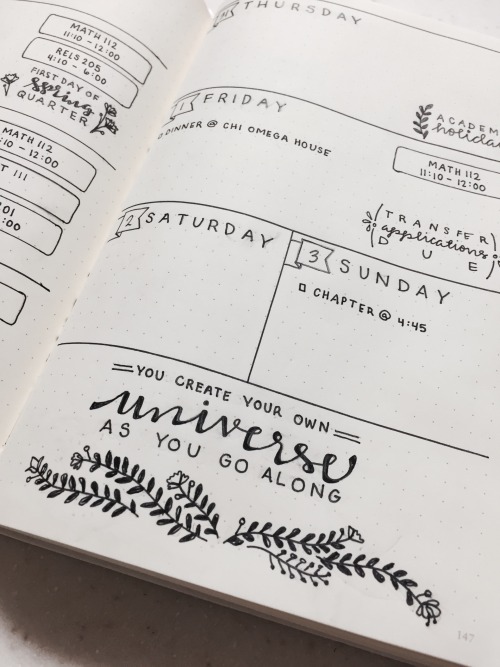 MATH 112
11:10 - 12:00
RELS 205
4:10 - 6:00
FIRST DAY OF
spring
QUARTER
MATH 112
- 12:00
T 111
01
:00
THURSDAY
1 FRIDAY
DINNER @ CHI OMEGA HOUSE
ACADEM
holiday
MATH 112
11:10 - 12:00
TRANSFER
applications
DUE
2 SATURDAY
3 SUNDAY
CHAPTER @ 4:45
YOU CREATE YOUR OWN
universe
AS YOU GO ALONG
147